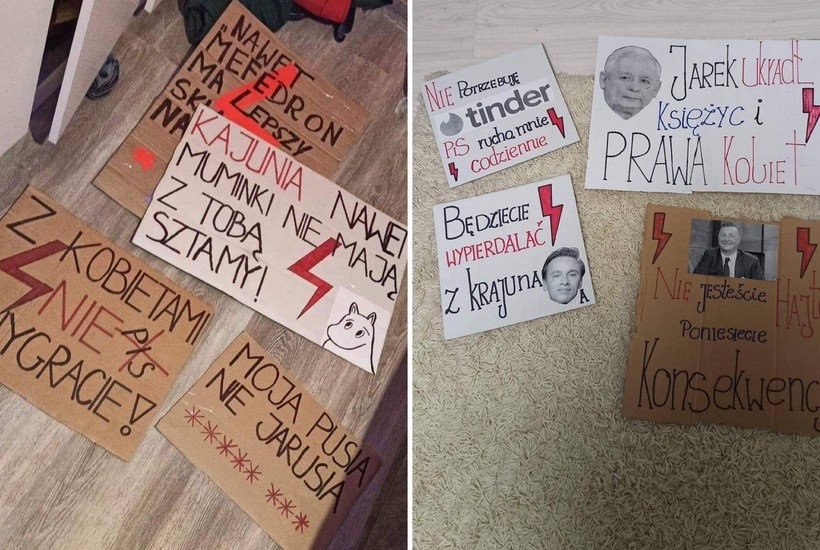 „NAWET
MEFEDRON
MA LEPSZY
SK
NA
KAJUNIA NAWET
MUMINKI NIE MAJĄ
Z TOBĄ
SZTAMY!
Z KOBIETAMI
NIE PiS
WYGRACIE!
MOJA PUSIA
NIE JARUSIA
***** ***
NIE POTRZEBUJĘ
tinder
PiS rucha mnie
codziennie
JAREK UKRADŁ
KSIĘŻYC i
PRAWA KOBIET
BĘDZIECIE
WYPIERDALAĆ
z KRAJUNA
A
NIE jesteście HAJT
Poniesiecie
Konsekwencj